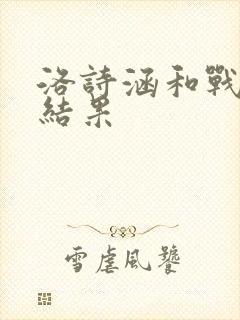 洛詩涵和戰
結果
雪虐風饕